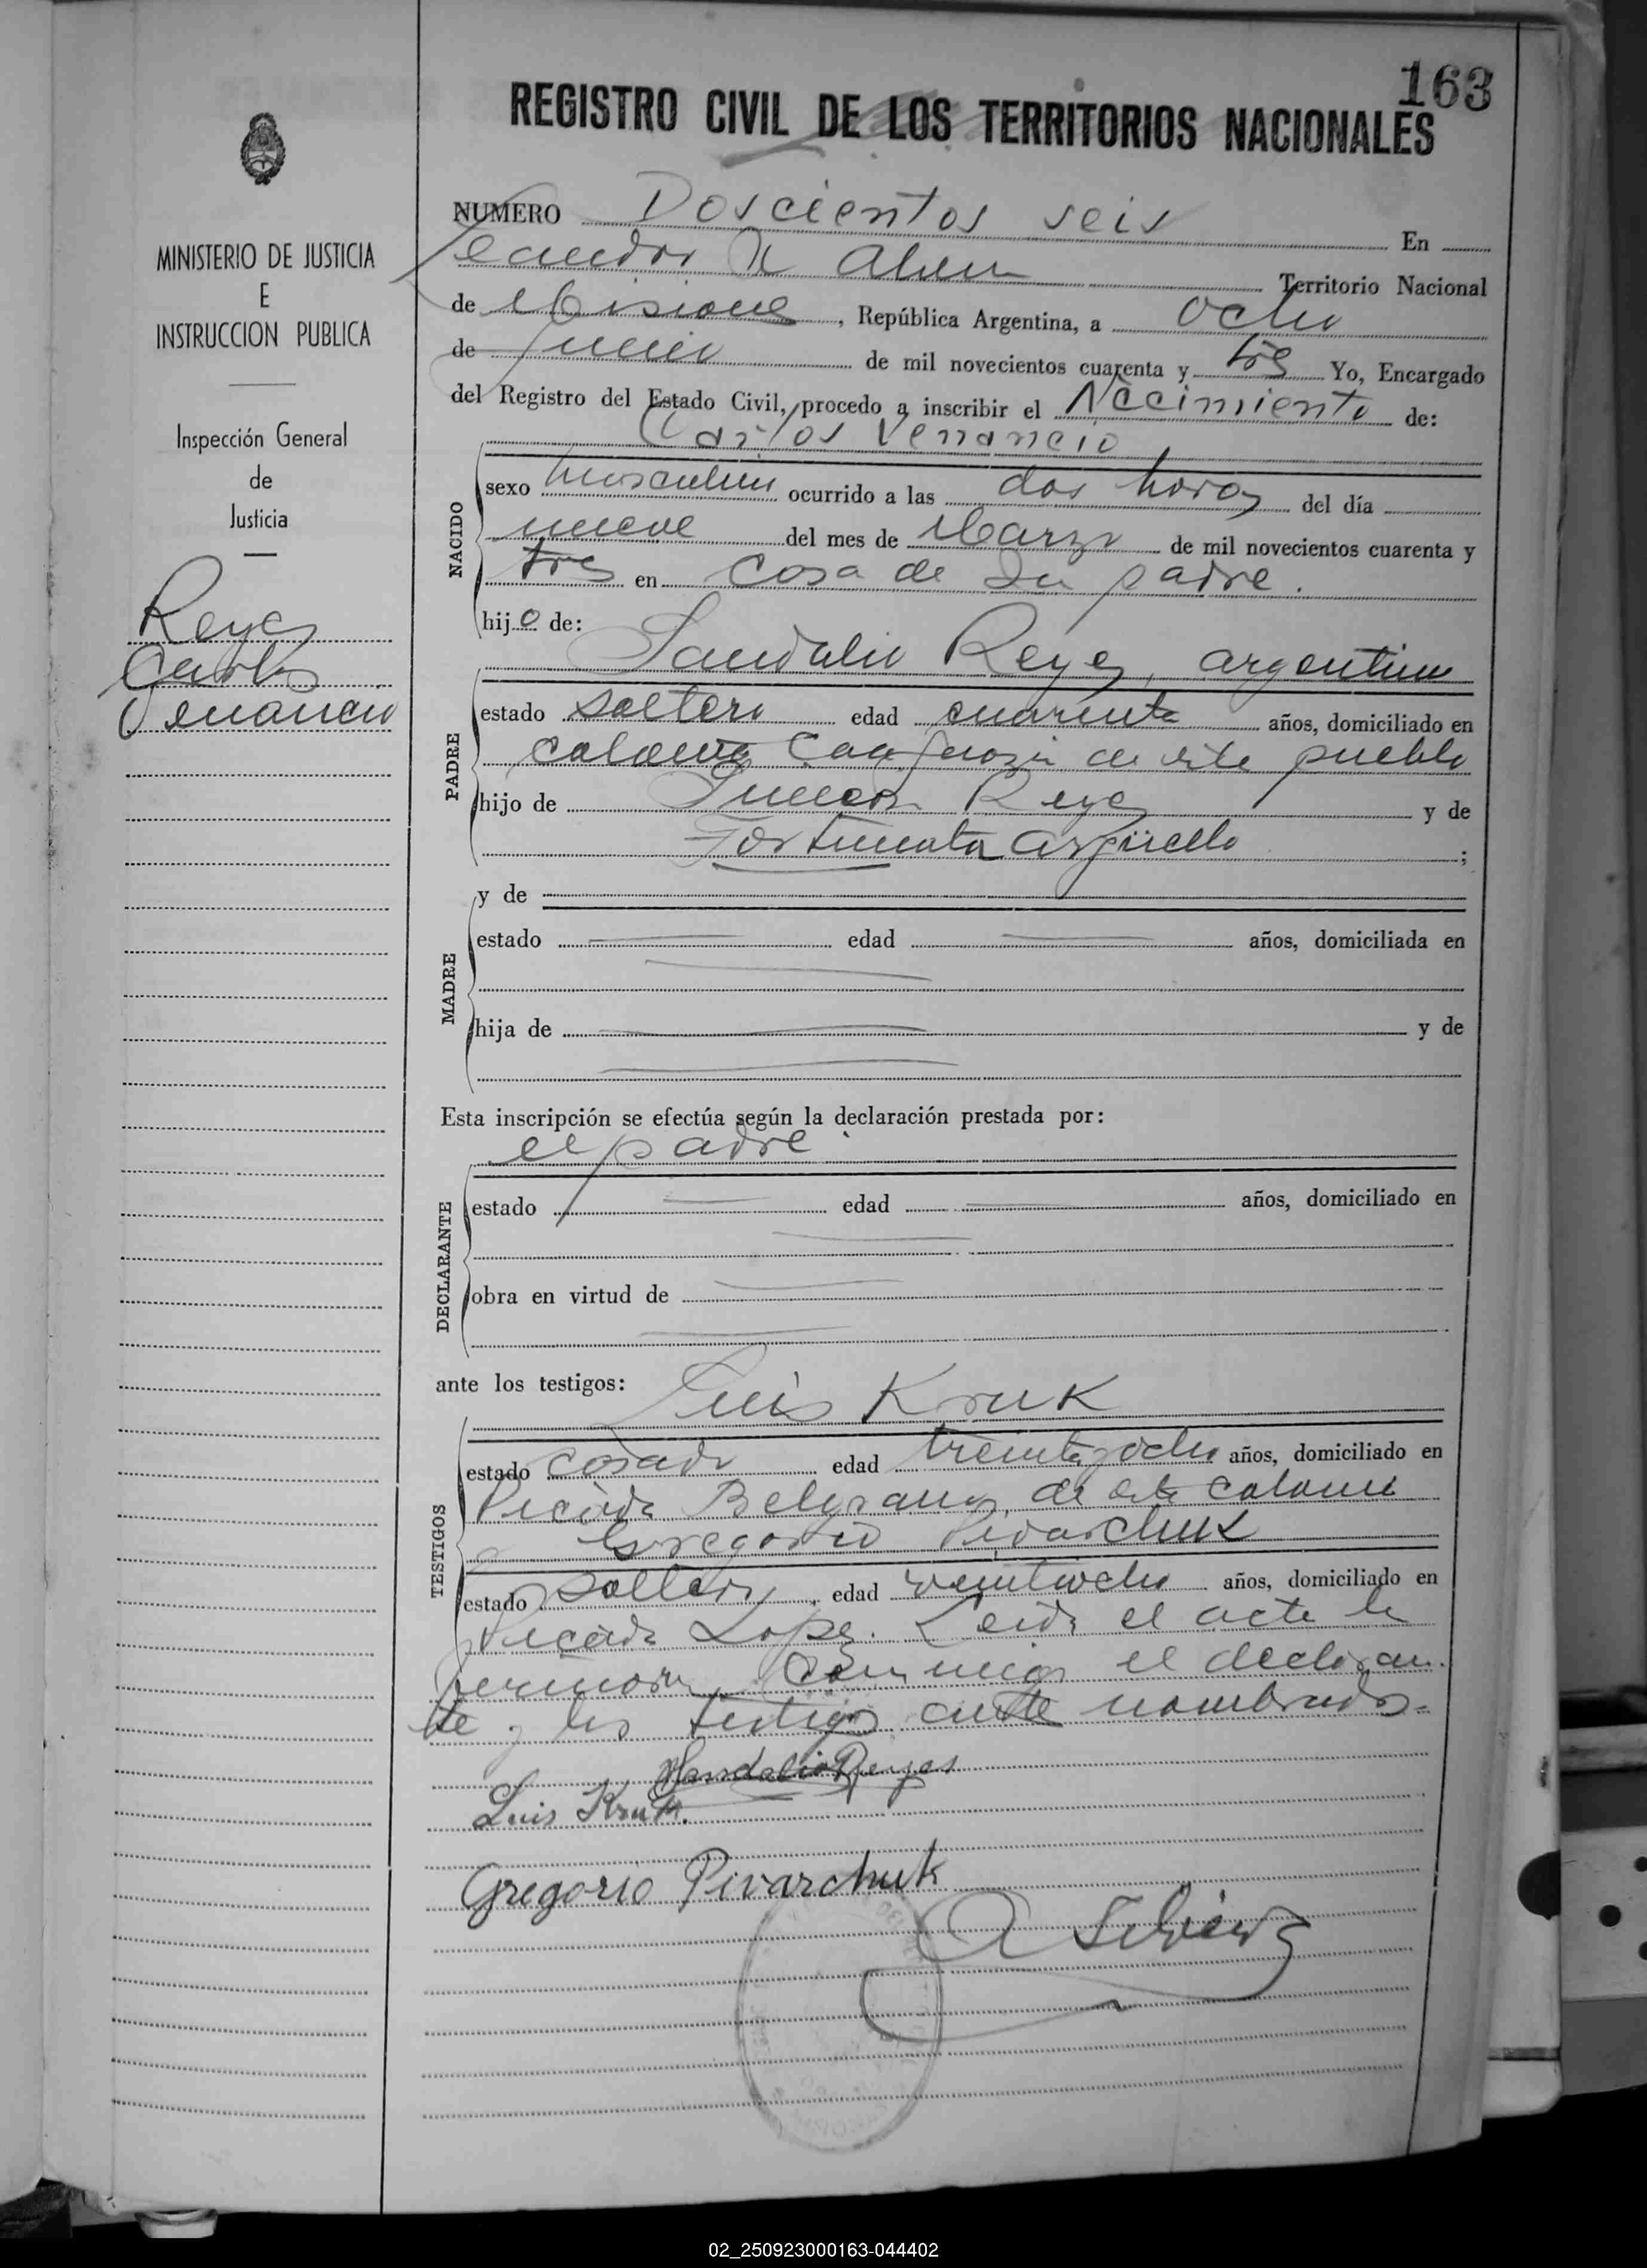 163
REGISTRO CIVIL DE LOS TERRITORIOS NACIONALES
MINISTERIO DE JUSTICIA
E
INSTRUCCION PUBLICA
Inspección General
de
Justicia
Reyes
Carlos
Venancio
NUMERO Doscientos seis En
Leandro N Alem Territorio Nacional
de Misiones, República Argentina, a ocho
de Junio de mil novecientos cuarenta y tres Yo, Encargado
del Registro del Estado Civil, procedo a inscribir el Nacimiento de:
Carlos Venancio
NACIDO
sexo masculino ocurrido a las dos horas del día
nueve del mes de Marzo de mil novecientos cuarenta y
tres en casa de su padre.
hijo de:
Sandalio Reyes, argentino
PADRE
estado soltero edad cuarenta años, domiciliado en
colonia de este pueblo
hijo de Reyes y de
Fortunata Argüello ;
y de
MADRE
estado edad años, domiciliada en
hija de y de
Esta inscripción se efectúa según la declaración prestada por:
el padre
DECLARANTE
estado edad años, domiciliado en
obra en virtud de
ante los testigos:
Luis Kruk
TESTIGOS
estado casado edad treinta y ocho años, domiciliado en
Picada Belgrano, de esta colonia
Gregorio Pivarchuk
estado soltero, edad veintiocho años, domiciliado en
Picada Lopez. Leida el acta la
firmaron conmigo el declaran-
te y los testigos ante nombrados.
Sandalio Reyes
Luis Kruk.
Gregorio Pivarchuk
02_250923000163-044402